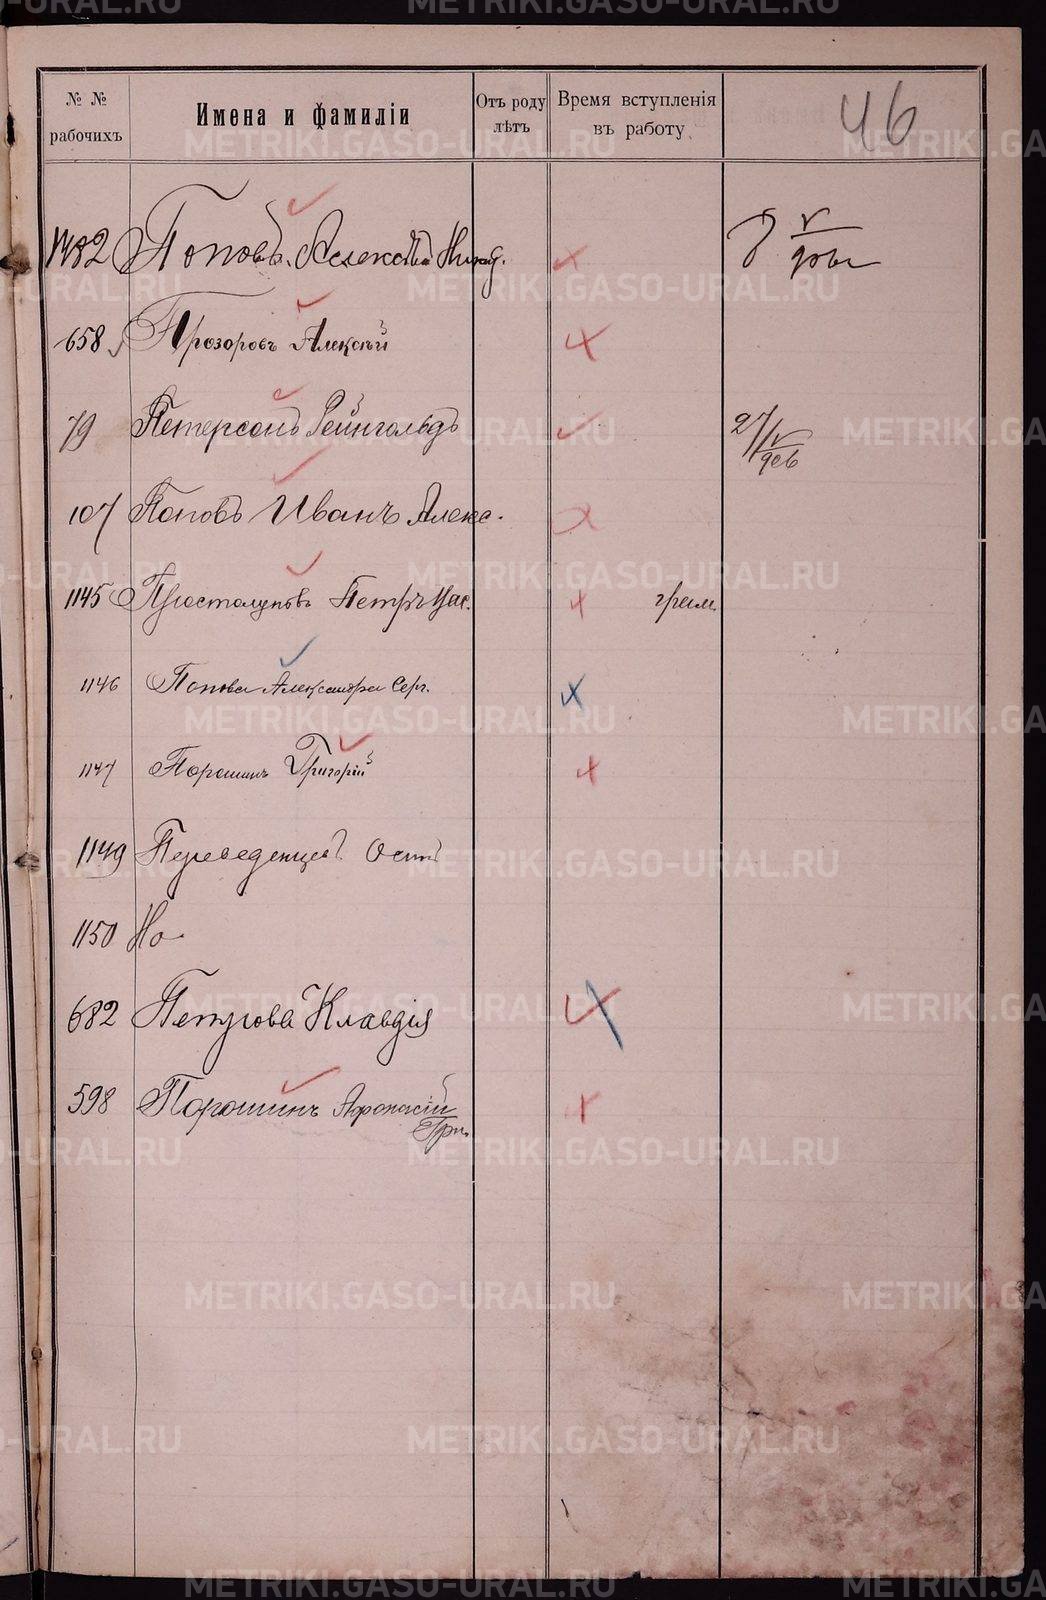 № №
рабочихъ
Имена и фамиліи
Отъ роду
лѣтъ
Время вступленія
въ работу
46
1482 Поповъ. Алексѣй Никад.
658 Прозоровъ Алексѣй
79 Петерсонъ Рейнгольдъ 27/V
107 Поповъ Иванъ Алекс.
1145 Простолуповъ Петръ Ив.
1146 Попова Александра Серг.
1147 Порошинъ Григорій
1149 Переведенцевъ Осипъ
1150 Но
682 Петрова Клавдія
598 Порошинъ Афонасій
Гри.
METRIKI.GASO-URAL.RU